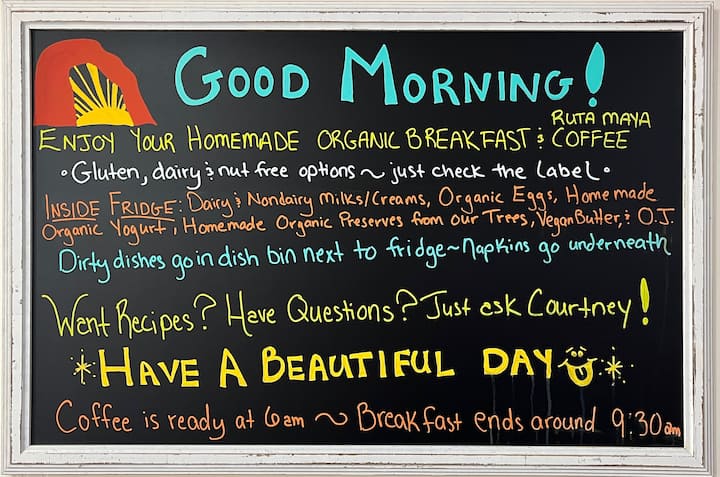 GOOD MORNING!
ENJOY YOUR HOMEMADE ORGANIC BREAKFAST & RUTA MAYA COFFEE
• Gluten, dairy & nut free options ~ just check the label •
INSIDE FRIDGE: Dairy & Nondairy Milks/Creams, Organic Eggs, Homemade
Organic Yogurt, Homemade Organic Preserves from our Trees, Vegan Butter, & O.J.
Dirty dishes go in dish bin next to fridge ~ Napkins go underneath
Want Recipes? Have Questions? Just ask Courtney!
* HAVE A BEAUTIFUL DAY *
Coffee is ready at 6am ~ Breakfast ends around 9:30am